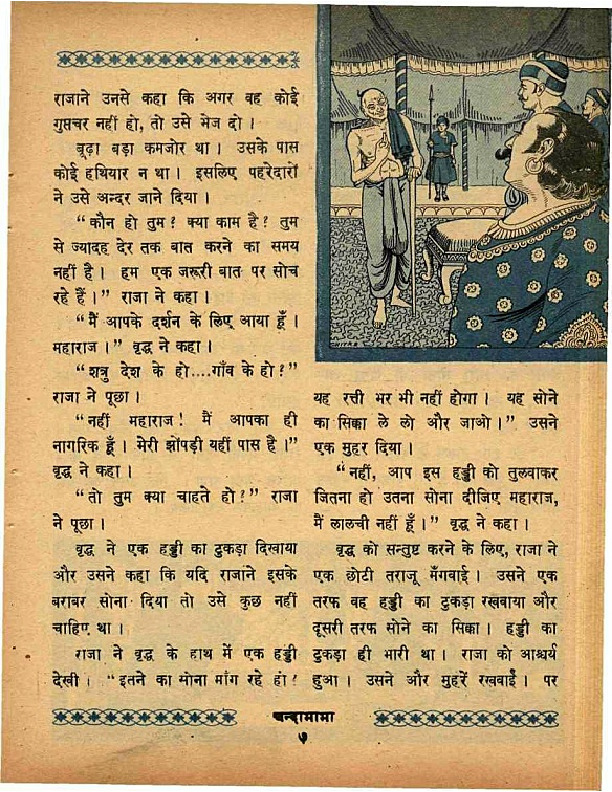 राजाने उनसे कहा कि अगर वह कोई
गुप्तचर नहीं हो, तो उसे भेज दो।
बूढ़ा बड़ा कमजोर था। उसके पास
कोई हथियार न था। इसलिए पहरेदारों
ने उसे अन्दर जाने दिया।
“कौन हो तुम? क्या काम है? तुम
से ज्यादह देर तक बात करने का समय
नहीं है। हम एक जरूरी बात पर सोच
रहे हैं।” राजा ने कहा।
“मैं आपके दर्शन के लिए आया हूँ।
महाराज।” वृद्ध ने कहा।
“शत्रु देश के हो....गाँव के हो?”
राजा ने पूछा।
“नहीं महाराज! मैं आपका ही
नागरिक हूँ। मेरी झोंपड़ी यहीं पास है।”
वृद्ध ने कहा।
“तो तुम क्या चाहते हो?” राजा
ने पूछा।
वृद्ध ने एक हड्डी का टुकड़ा दिखाया
और उसने कहा कि यदि राजाने इसके
बराबर सोना दिया तो उसे कुछ नहीं
चाहिए था।
राजा ने वृद्ध के हाथ में एक हड्डी
देखी। “इतने का सोना मांग रहे हो?
यह रत्ती भर भी नहीं होगा। यह सोने
का सिक्का ले लो और जाओ।” उसने
एक मुहर दिया।
“नहीं, आप इस हड्डी को तुलवाकर
जितना हो उतना सोना दीजिए महाराज,
मैं लालची नहीं हूँ।” वृद्ध ने कहा।
वृद्ध को सन्तुष्ट करने के लिए, राजा ने
एक छोटी तराजू मँगवाई। उसने एक
तरफ वह हड्डी का टुकड़ा रखवाया और
दूसरी तरफ सोने का सिक्का। हड्डी का
टुकड़ा ही भारी था। राजा को आश्चर्य
हुआ। उसने और मुहरें रखवाईं। पर
चन्दामामा
७